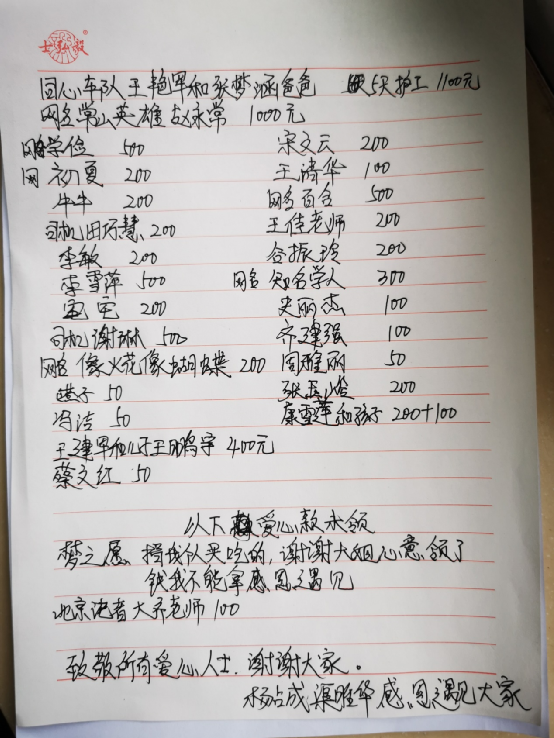 同心车队王艳军和张梦涵爸爸 5天护工1100元
网名常山英雄赵永常 1000元
网名学俭 500 宋文云 200
网 初夏 200 王清华 100
牛牛 200 网名百合 500
司机田巧慧 200 王佳老师 200
李敏 200 谷振玲 200
李雪萍 500 网名 知名学人 300
宝宝 200 史丽杰 100
司机谢琳 500 齐建强 100
网名 像火花像蝴蝶 200 周雅丽 50
燕子 50 200
冯洁 50 康雪莲和孩子 200+100
王建军和儿子王鹏宇 400元
蔡文红 50
以下 爱心款未领
梦之愿 给我队买吃的,谢谢大姐心意领了
钱我不能拿感恩遇见
北京记者大齐老师 100
致敬所有爱心人士.谢谢大家。
杨占成 渠雅华 感恩遇见大家